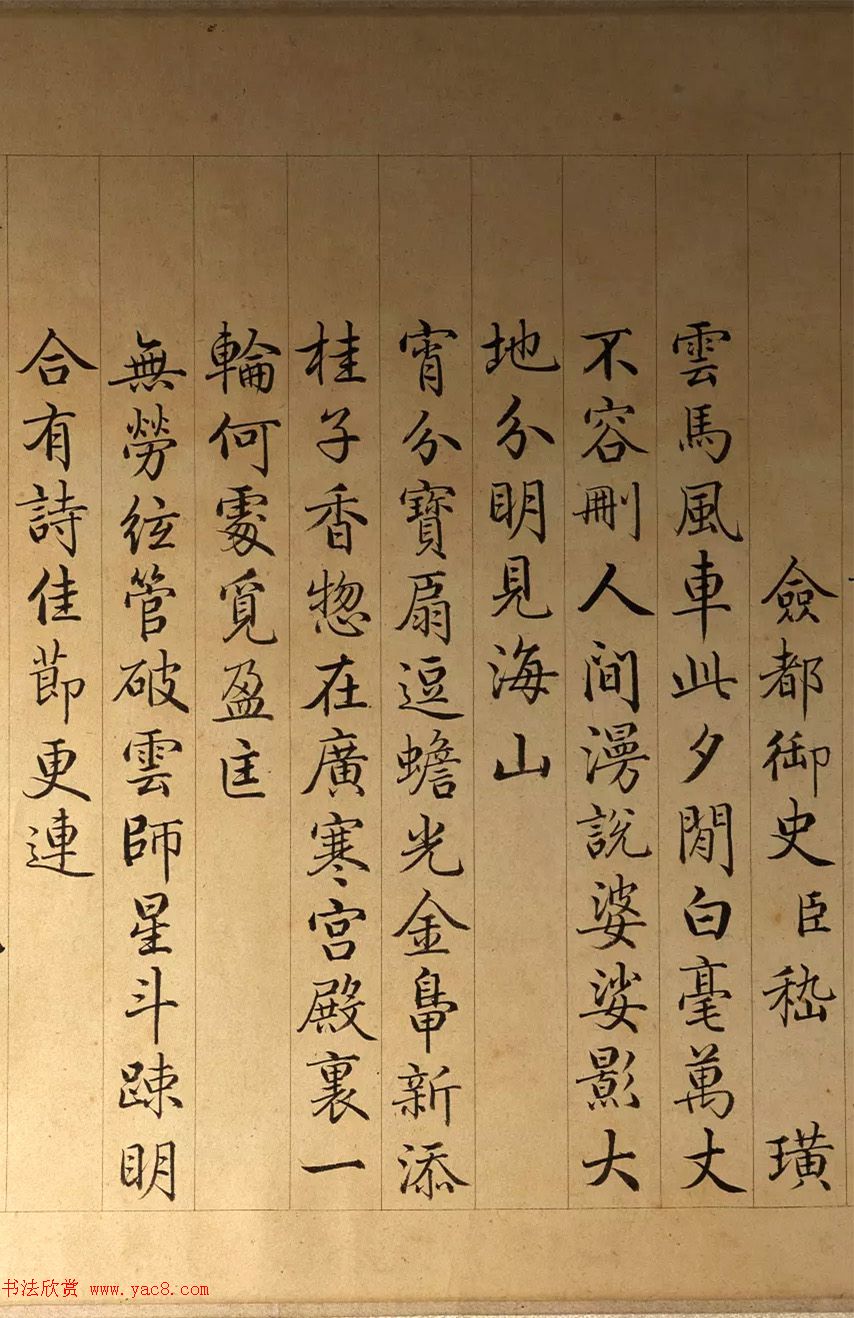 僉都御史臣嵇璜
雲馬風車此夕閒白毫萬丈
不容刪人間漫說婆娑影大
地分明見海山
宵分寶扇逗蟾光金鼻新添
桂子香惣在廣寒宮殿裏一
輪何處覓盈匡
無勞絃管破雲師星斗疎明
合有詩佳節更連
书法欣赏 www.yac8.com